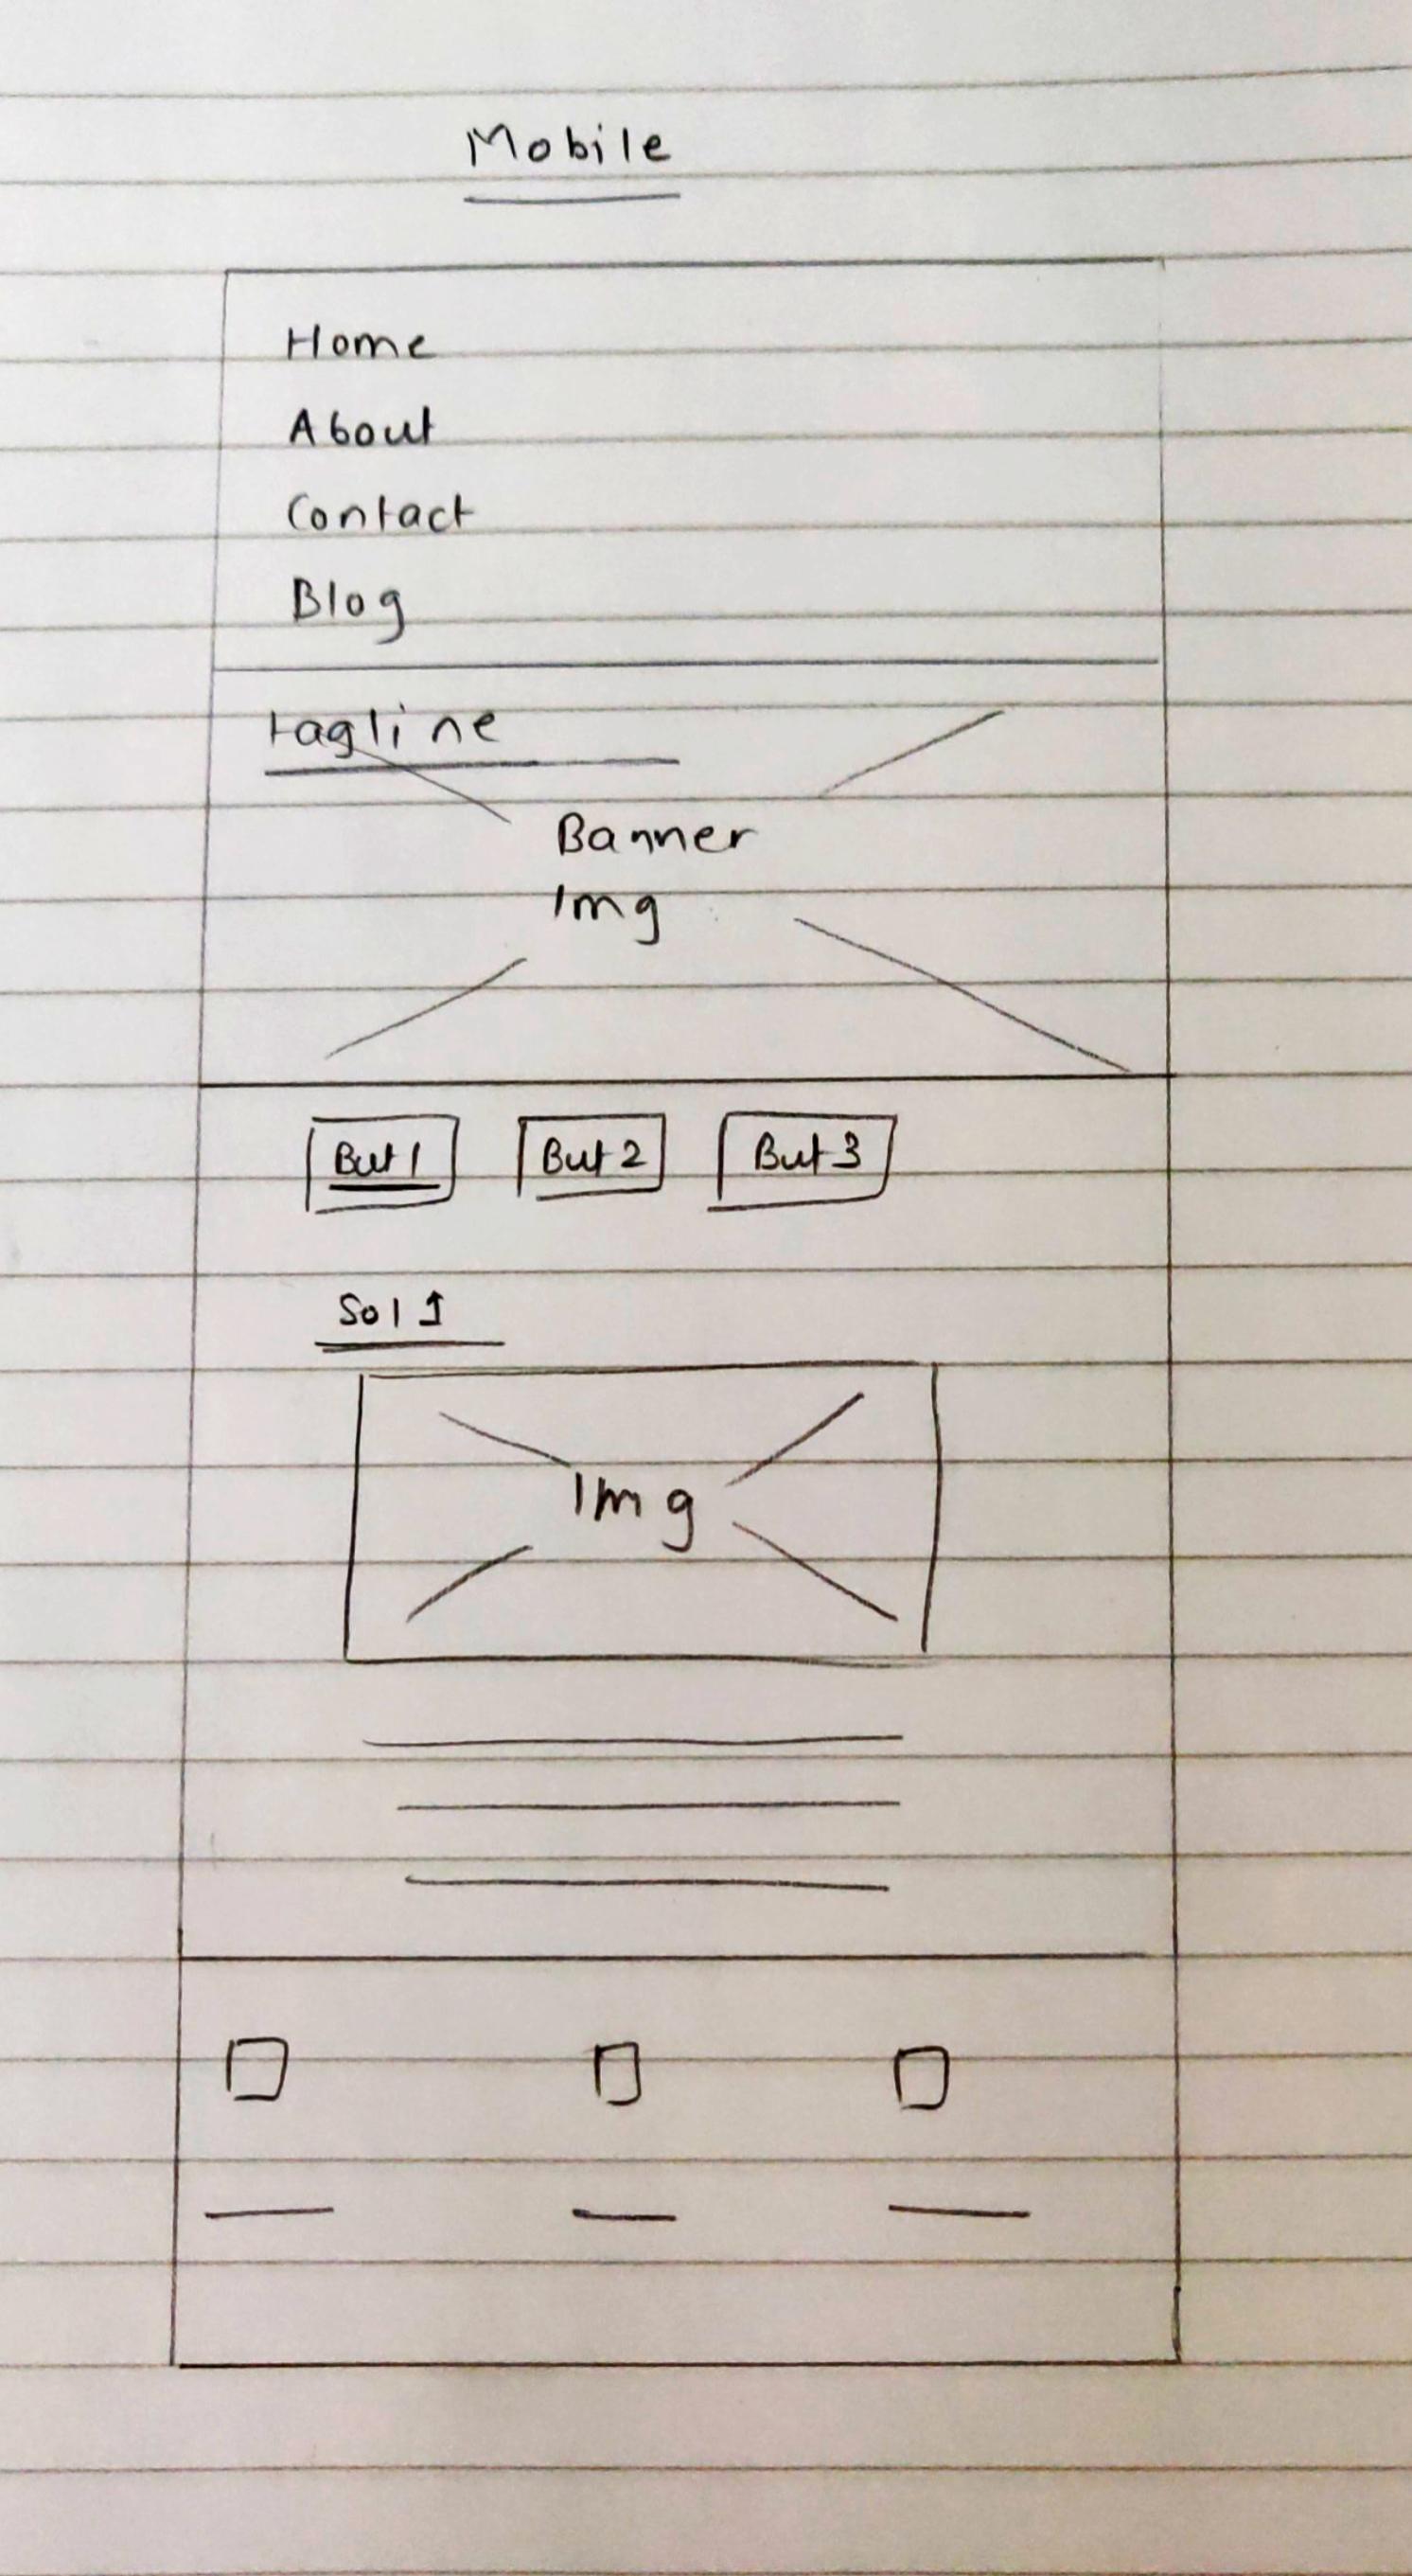 Mobile
Home
About
Contact
Blog
tagline
Banner
Img
But 1
But 2
But 3
Sol 1
Img